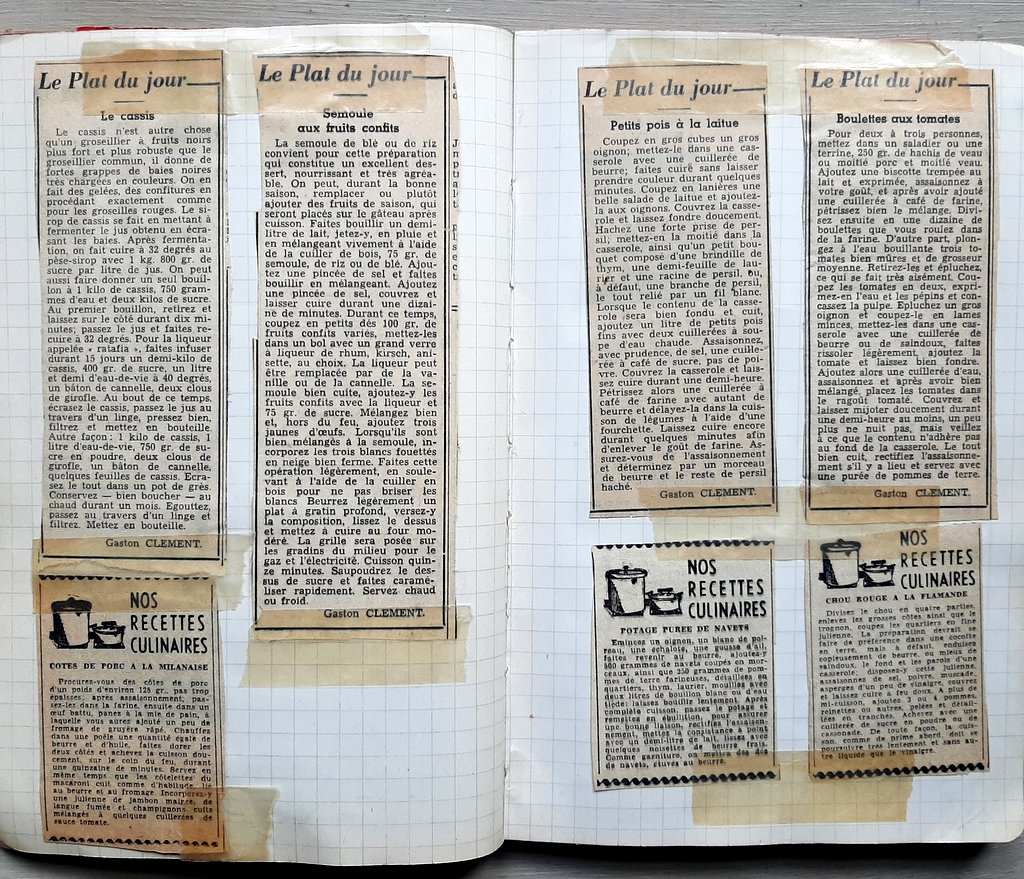 Le Plat du jour
Le cassis
Le cassis n'est autre chose
qu'un groseillier à fruits noirs
plus fort et plus robuste que le
groseillier commun, il donne de
fortes grappes de baies noires
très chargées en couleurs. On en
fait des gelées, des confitures en
procédant exactement comme
pour les groseilles rouges. Le si-
rop de cassis se fait en mettant à
fermenter le jus obtenu en écra-
sant les baies. Après fermenta-
tion, on fait cuire à 32 degrés au
pèse-sirop avec 1 kg. 800 gr. de
sucre par litre de jus. On peut
aussi faire donner un seul bouil-
lon à 1 kilo de cassis, 750 gram-
mes d'eau et deux kilos de sucre.
Au premier bouillon, retirez et
laissez sur le côté durant dix mi-
nutes; passez le jus et faites re-
cuire à 32 degrés. Pour la liqueur
appelée « ratafia », faites infuser
durant 15 jours un demi-kilo de
cassis, 400 gr. de sucre, un litre
et demi d'eau-de-vie à 40 degrés,
un bâton de cannelle, deux clous
de girofle. Au bout de ce temps,
écrasez le cassis, passez le jus au
travers d'un linge, pressez bien,
filtrez et mettez en bouteille.
Autre façon : 1 kilo de cassis, 1
litre d'eau-de-vie, 750 gr. de su-
cre en poudre, deux clous de
girofle, un bâton de cannelle,
quelques feuilles de cassis. Ecra-
sez le tout dans un pot de grès.
Conservez — bien boucher — au
chaud durant un mois. Egouttez,
passez au travers d'un linge et
filtrez. Mettez en bouteille.
Gaston CLEMENT.
NOS
RECETTES
CULINAIRES
COTES DE PORC A LA MILANAISE
Procurez-vous des côtes de porc
d'un poids d'environ 125 gr., pas trop
épaisses; après assaisonnement, pas-
sez-les dans la farine, ensuite dans un
œuf battu, panez à la mie de pain, à
laquelle vous aurez ajouté un peu de
fromage de gruyère râpé. Chauffez
dans une poêle une quantité égale de
beurre et d'huile, faites dorer les
deux côtés et achevez la cuisson dou-
cement, sur le coin du feu, durant
une quinzaine de minutes. Servez en
même temps que les côtelettes du
macaroni cuit comme d'habitude, lié
au beurre et au fromage. Incorporez-y
une julienne de jambon maigre, de
langue fumée et champignons cuits
mélangés à quelques cuillerées de
sauce tomate.
Le Plat du jour
Semoule
aux fruits confits
La semoule de blé ou de riz
convient pour cette préparation
qui constitue un excellent des-
sert, nourrissant et très agréa-
ble. On peut, durant la bonne
saison, remplacer ou plutôt
ajouter des fruits de saison, qui
seront placés sur le gâteau après
cuisson. Faites bouillir un demi-
litre de lait, jetez-y, en pluie et
en mélangeant vivement à l'aide
de la cuiller de bois, 75 gr. de
semoule, de riz ou de blé. Ajou-
tez une pincée de sel et faites
bouillir en mélangeant. Ajoutez
une pincée de sel, couvrez et
laissez cuire durant une dizai-
ne de minutes. Durant ce temps,
coupez en petits dés 100 gr. de
fruits confits variés, mettez-les
dans un bol avec un grand verre
à liqueur de rhum, kirsch, ani-
sette, au choix. La liqueur peut
être remplacée par de la va-
nille ou de la cannelle. La se-
moule bien cuite, ajoutez-y les
fruits confits avec la liqueur et
75 gr. de sucre. Mélangez bien
et, hors du feu, ajoutez trois
jaunes d'œufs. Lorsqu'ils sont
bien mélangés à la semoule, in-
corporez les trois blancs fouettés
en neige bien ferme. Faites cette
opération légèrement, en soule-
vant à l'aide de la cuiller en
bois pour ne pas briser les
blancs Beurrez légèrement un
plat à gratin profond, versez-y
la composition, lissez le dessus
et mettez à cuire au four mo-
déré. La grille sera posée sur
les gradins du milieu pour le
gaz et l'électricité. Cuisson quin-
ze minutes. Saupoudrez le des-
sus de sucre et faites caramé-
liser rapidement. Servez chaud
ou froid.
Gaston CLEMENT.
Le Plat du jour
Petits pois à la laitue
Coupez en gros cubes un gros
oignon; mettez-le dans une cas-
serole avec une cuillerée de
beurre; faites cuire sans laisser
prendre couleur durant quelques
minutes. Coupez en lanières une
belle salade de laitue et ajoutez-
la aux oignons. Couvrez la casse-
role et laissez fondre doucement.
Hachez une forte prise de per-
sil; mettez-en la moitié dans la
casserole, ainsi qu'un petit bou-
quet composé d'une brindille de
thym, une demi-feuille de lau-
rier et une racine de persil, ou,
à défaut, une branche de persil,
le tout relié par un fil blanc.
Lorsque le contenu de la casse-
role sera bien fondu et cuit,
ajoutez un litre de petits pois
fins avec deux cuillerées à sou-
pe d'eau chaude. Assaisonnez,
avec prudence, de sel, une cuille-
rée à café de sucre, pas de poi-
vre. Couvrez la casserole et lais-
sez cuire durant une demi-heure.
Pétrissez alors une cuillerée à
café de farine avec autant de
beurre et délayez-la dans la cuis-
son de légumes à l'aide d'une
fourchette. Laissez cuire encore
durant quelques minutes afin
d'enlever le goût de farine. As-
surez-vous de l'assaisonnement
et déterminez par un morceau
de beurre et le reste de persil
haché.
Gaston CLEMENT.
NOS
RECETTES
CULINAIRES
POTAGE PUREE DE NAVETS
Emincez un oignon, un blanc de poi-
reau, une échalote, une gousse d'ail,
faites revenir au beurre, ajoutez-y
500 grammes de navets coupés en mor-
ceaux, ainsi que 250 grammes de pom-
mes de terre farineuses, détaillées en
quartiers, thym, laurier, mouillez avec
deux litres de bouillon blanc ou d'eau
tiède; laissez bouillir lentement. Après
complète cuisson, passez le potage et
remettez en ébullition, pour assurer
une bonne liaison, rectifiez l'assaison-
nement, mettez la consistance à point
avec un demi-litre de lait, lissez avec
quelques noisettes de beurre frais.
Comme garniture, on mettra des dés
de navets, étuvés au beurre.
Le Plat du jour
Boulettes aux tomates
Pour deux à trois personnes,
mettez dans un saladier ou une
terrine, 250 gr. de hachis de veau
ou moitié porc et moitié veau.
Ajoutez une biscotte trempée au
lait et exprimée, assaisonnez à
votre goût, et après avoir ajouté
une cuillerée à café de farine,
pétrissez bien le mélange. Divi-
sez ensuite en une dizaine de
boulettes que vous roulez dans
de la farine. D'autre part, plon-
gez à l'eau bouillante trois to-
mates bien mûres et de grosseur
moyenne. Retirez-les et épluchez,
ce qui se fait très aisément. Cou-
pez les tomates en deux, expri-
mez-en l'eau et les pépins et con-
cassez la pulpe. Epluchez un gros
oignon et coupez-le en lames
minces, mettez-les dans une cas-
serole avec une cuillerée de
beurre ou de saindoux, faites
rissoler légèrement, ajoutez la
tomate et laissez bien fondre.
Ajoutez alors une cuillerée d'eau,
assaisonnez et après avoir bien
mélangé, placez les tomates dans
le ragoût tomaté. Couvrez et
laissez mijoter doucement durant
une demi-heure au moins, un peu
plus ne nuit pas, mais veillez
à ce que le contenu n'adhère pas
au fond de la casserole. Le tout
bien cuit, rectifiez l'assaisonne-
ment s'il y a lieu et servez avec
une purée de pommes de terre.
Gaston CLEMENT.
NOS
RECETTES
CULINAIRES
CHOU ROUGE A LA FLAMANDE
Divisez le chou en quatre parties,
enlevez les grosses côtes ainsi que le
trognon, coupez les quartiers en fine
julienne. La préparation devrait se
faire de préférence dans une cocotte
en terre, mais à défaut, enduisez
copieusement de beurre, ou mieux de
saindoux, le fond et les parois d'une
casserole, disposez-y cette julienne,
assaisonnez de sel, poivre, muscade,
aspergez d'un peu de vinaigre, couvrez
et laissez cuire à feu doux. A plus de
mi-cuisson, ajoutez 3 ou 4 pommes,
reinettes ou autres, pelées et détail-
lées en tranches. Achevez avec une
cuillerée de sucre en poudre ou de
cassonade. De toute façon, la cuis-
son, comme de prime abord, doit se
poursuivre très lentement et sans au-
tre liquide que le vinaigre.